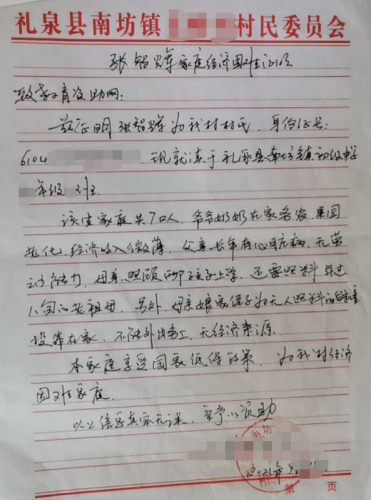 礼泉县南坊镇 村民委员会
张智辉家庭经济困难证明
致教育资助网：
兹证明张智辉为我村村民，身份证号：
6104 ，现就读于礼泉县南坊镇初级中学
年级 班
该生家庭共7口人，爷爷奶奶在家务农果园
老化，经济收入微薄，父亲长年有心脏病，无劳
动能力，母亲照顾 孩子上学，还要照料年过
八旬的老祖母，另外，母亲娘家 无人照料
在家，不能外出务工，无经济来源。
本家庭享受国家低保政策，为我村经济
困难家庭
以上信息真实无误，至予以资助
第 页